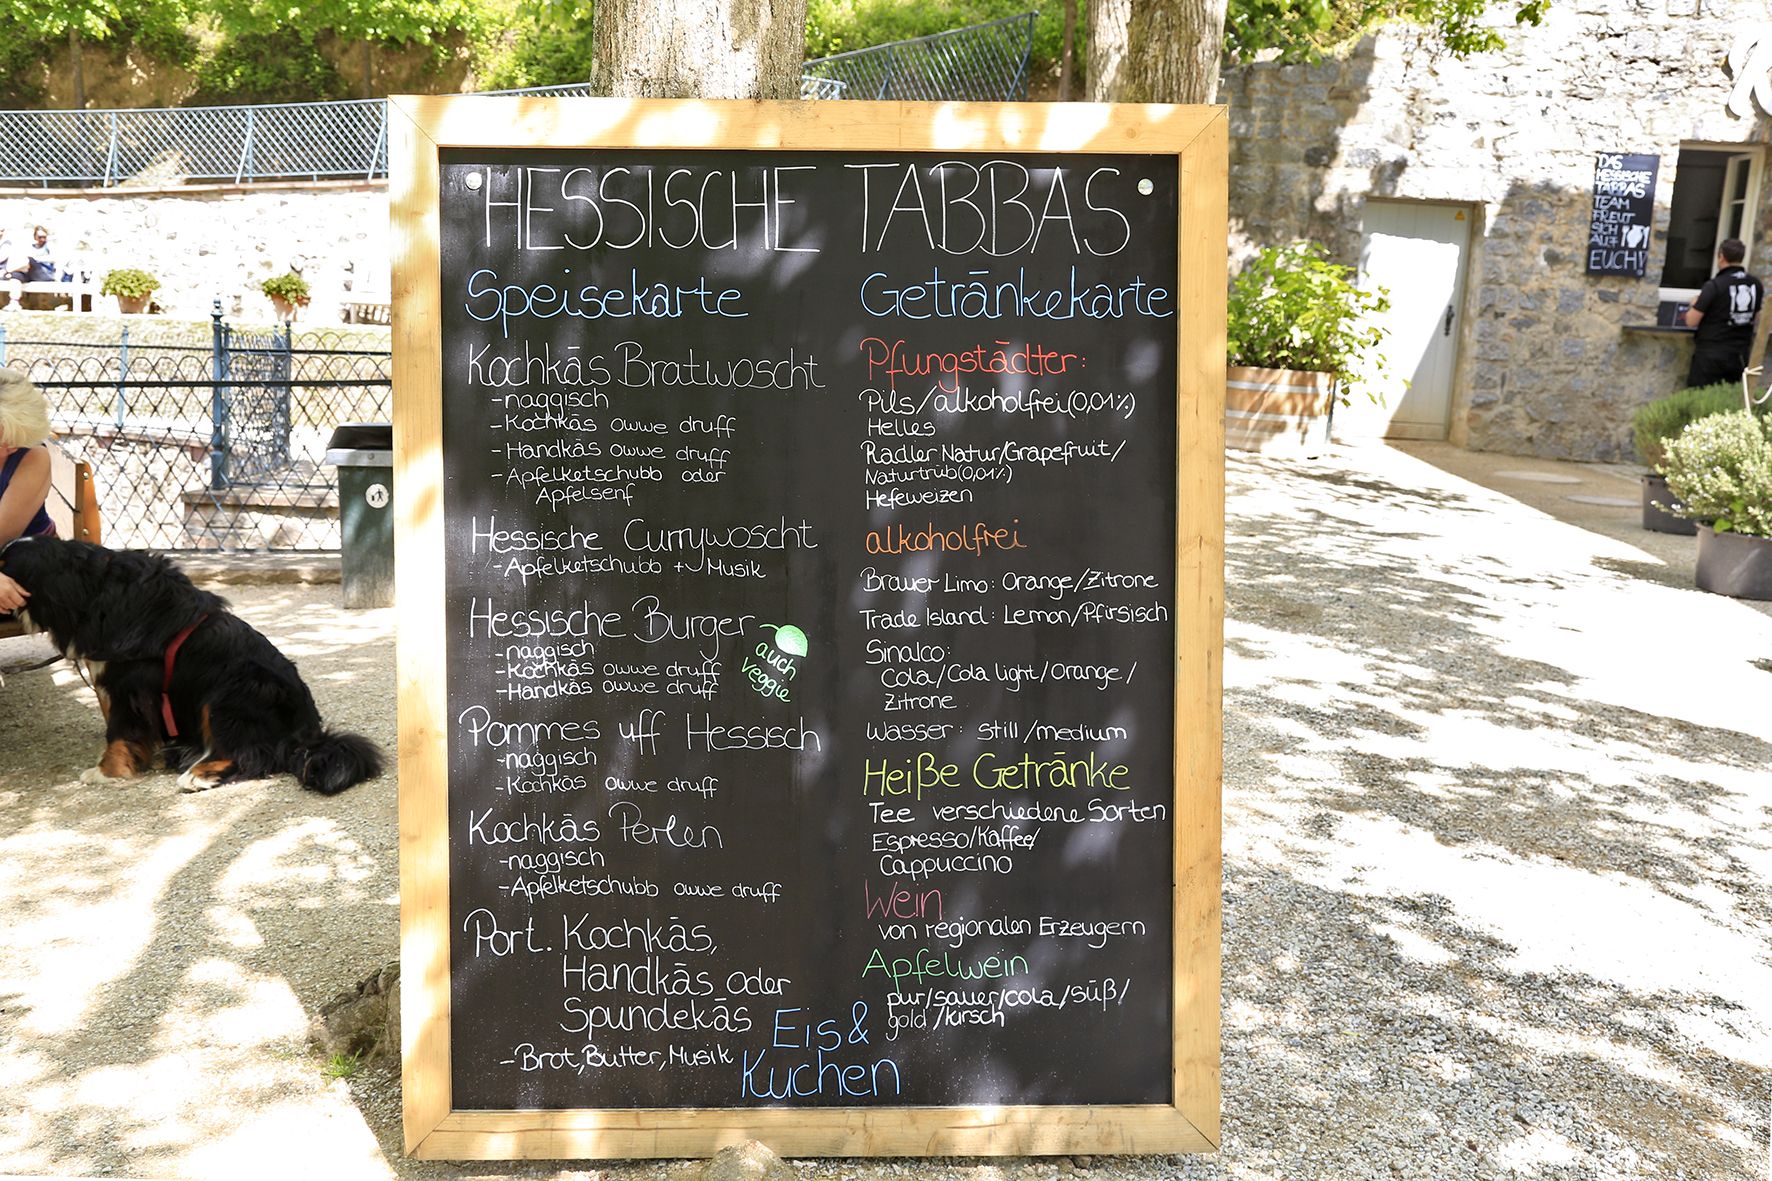 HESSISCHE TABBAS
Speisekarte
Kochkäs Bratwoscht
-naggisch
-Kochkäs owwe druff
-Handkäs owwe druff
-Apfelketschubb oder
Apfelsenf
Hessische Currywoscht
-Apfelketschubb + Musik
Hessische Burger
-naggisch
-Kochkäs owwe druff
-Handkäs owwe druff
auch
veggie
Pommes uff Hessisch
-naggisch
-Kochkäs owwe druff
Kochkäs Perlen
-naggisch
-Apfelketschubb owwe druff
Port. Kochkäs,
Handkäs oder
Spundekäs
-Brot, Butter, Musik
Eis &
Kuchen
Getränkekarte
Pfungstädter:
Pils/alkoholfrei(0,01%)
Helles
Radler Natur/Grapefruit/
Naturtrüb(0,01%)
Hefeweizen
alkoholfrei
Brauer Limo: Orange/Zitrone
Trade Island: Lemon/Pfirsisch
Sinalco:
Cola/Cola light/Orange/
Zitrone
Wasser: still/medium
Heiße Getränke
Tee verschiedene Sorten
Espresso/Kaffee/
Cappuccino
Wein
von regionalen Erzeugern
Apfelwein
pur/sauer/cola/süß/
gold/kirsch
DAS
HESSISCHE
TABBAS
TEAM
FREUT
SICH
AUF
EUCH!